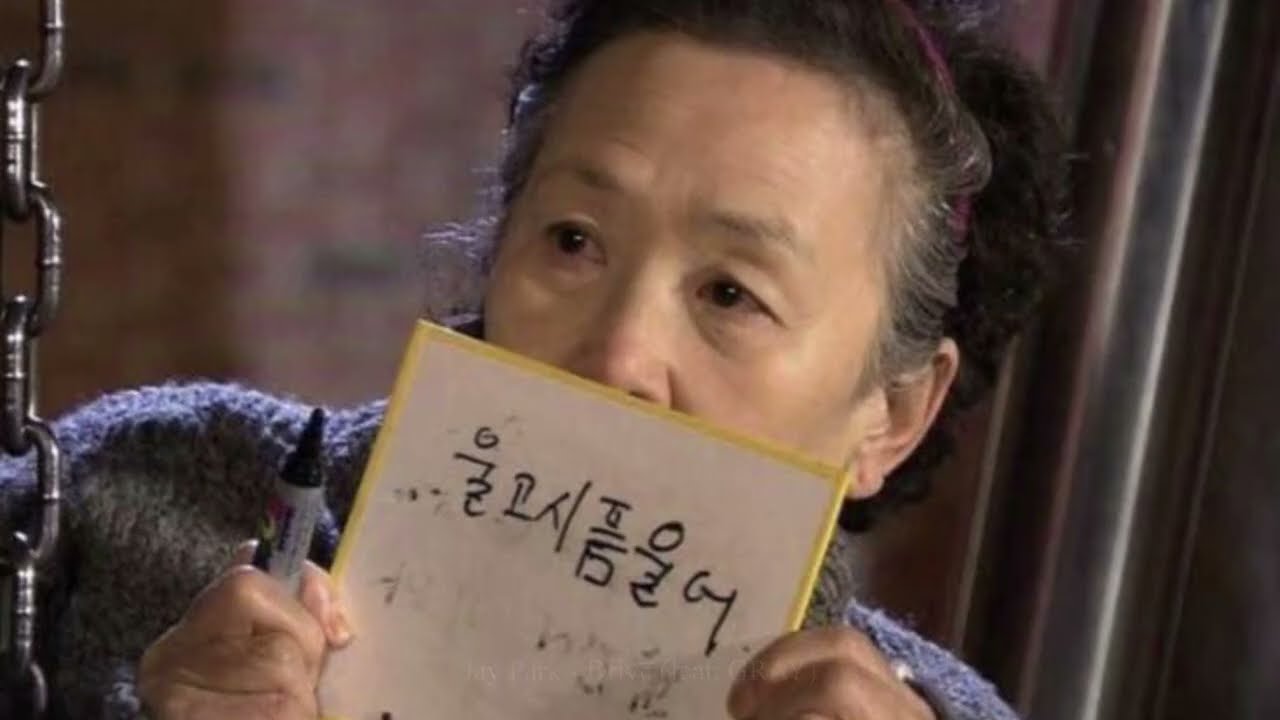 울고시픔울어
Jay Park - Drive (feat. GRAY)